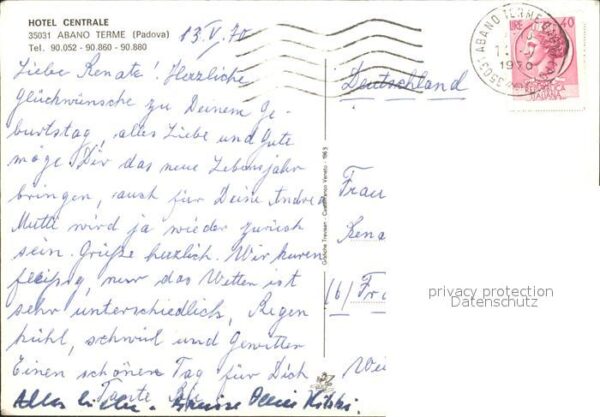 HOTEL CENTRALE
35031 ABANO TERME (Padova)
Tel. 90.052 - 90.860 - 90.880
13.V.70
Liebe Renate! Herzliche
Glückwünsche zu Deinem Ge-
burtstag, alles Liebe und Gute
möge Dir das neue Lebensjahr
bringen, auch für Deine Andrea
Mutti wird ja wieder zurück
sein. Grüße herzlich. Wir kuren
fleißig, nur das Wetter ist
sehr unterschiedlich, Regen
kühl, schwül und Gewitter
Einen schönen Tag für Dich
Tante
Alles Liebe
Deutschland
Frau
Rena
(6) Fr
Wei
35031 ABANO TERME
1970
LIRE 40
ITALIANA
Grafiche Trevisan - Castelfranco Veneto - 1963
privacy protection
Datenschutz